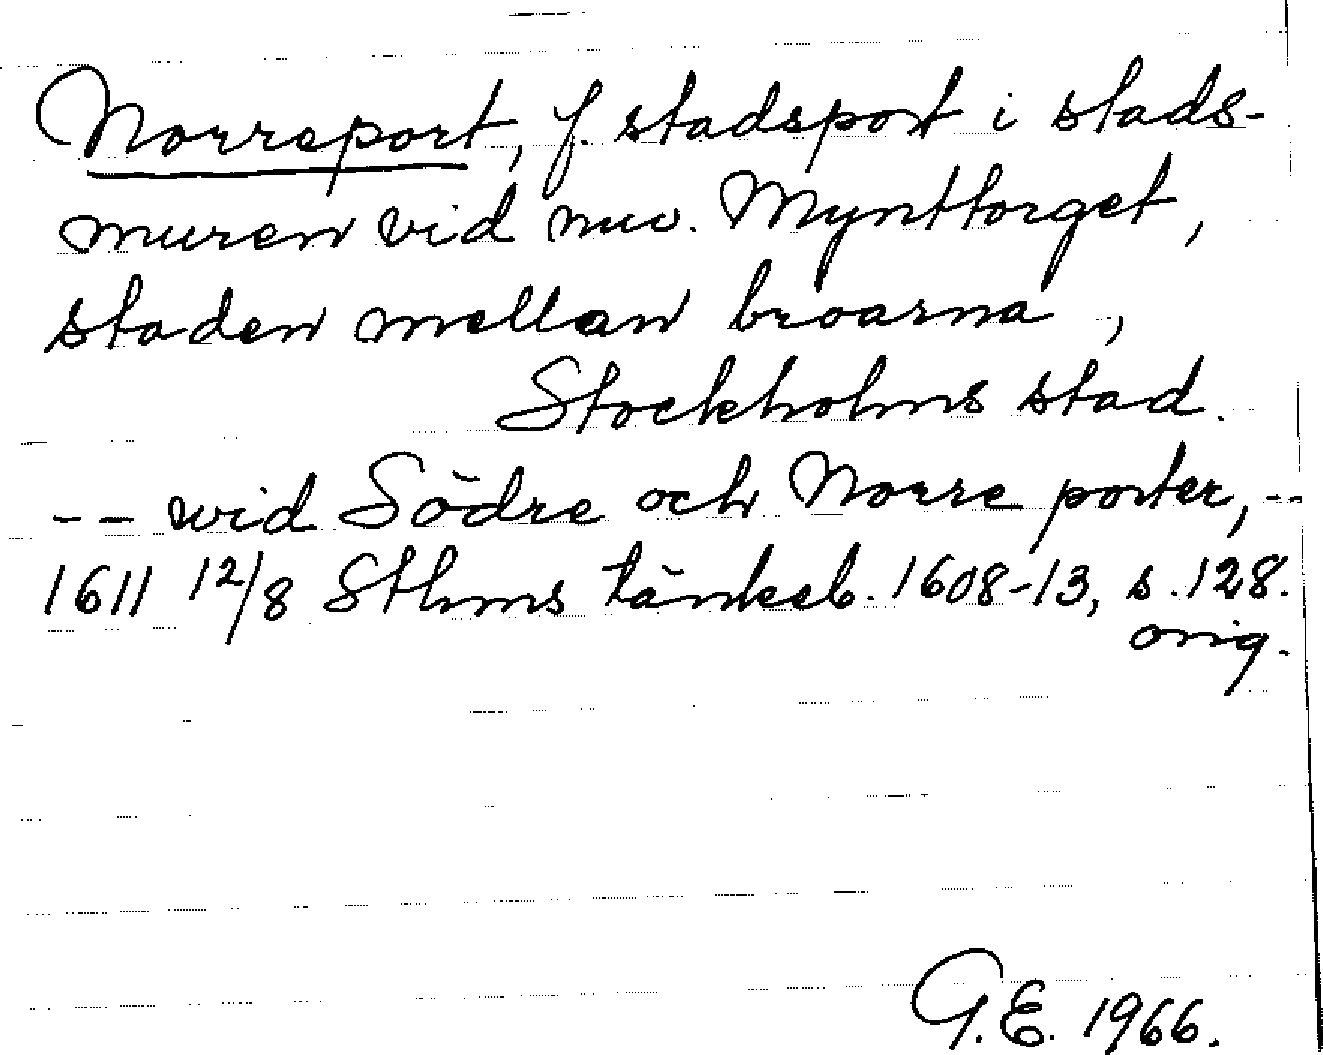 Norreport, f. stadsport i stads-
muren vid nuv. Mynttorget,
staden mellan broarna,
Stockholms stad.
-- wid Södre och Norre porter, --
1611 12/8 Sthms tänkeb. 1608-13, s. 128.
orig.
G.E. 1966.